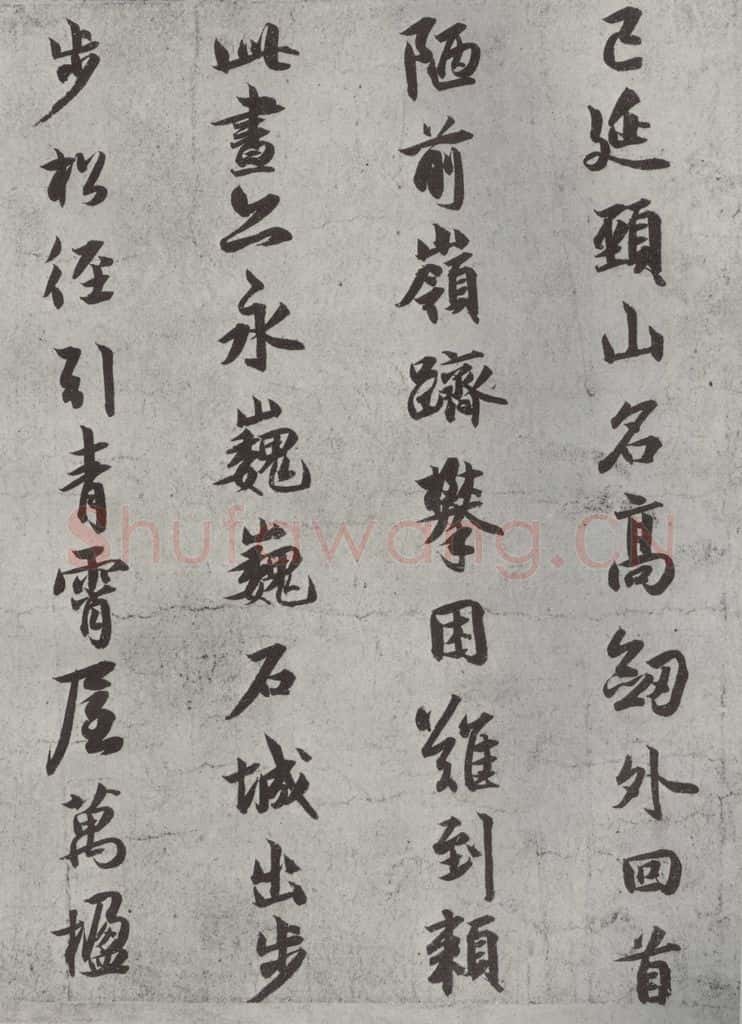 已延頸山名高劔外回首
陋前嶺躋攀困難到頼
此畫亦永巍巍石城出步
步松徑引青霄屋萬楹
Shufawang.CN